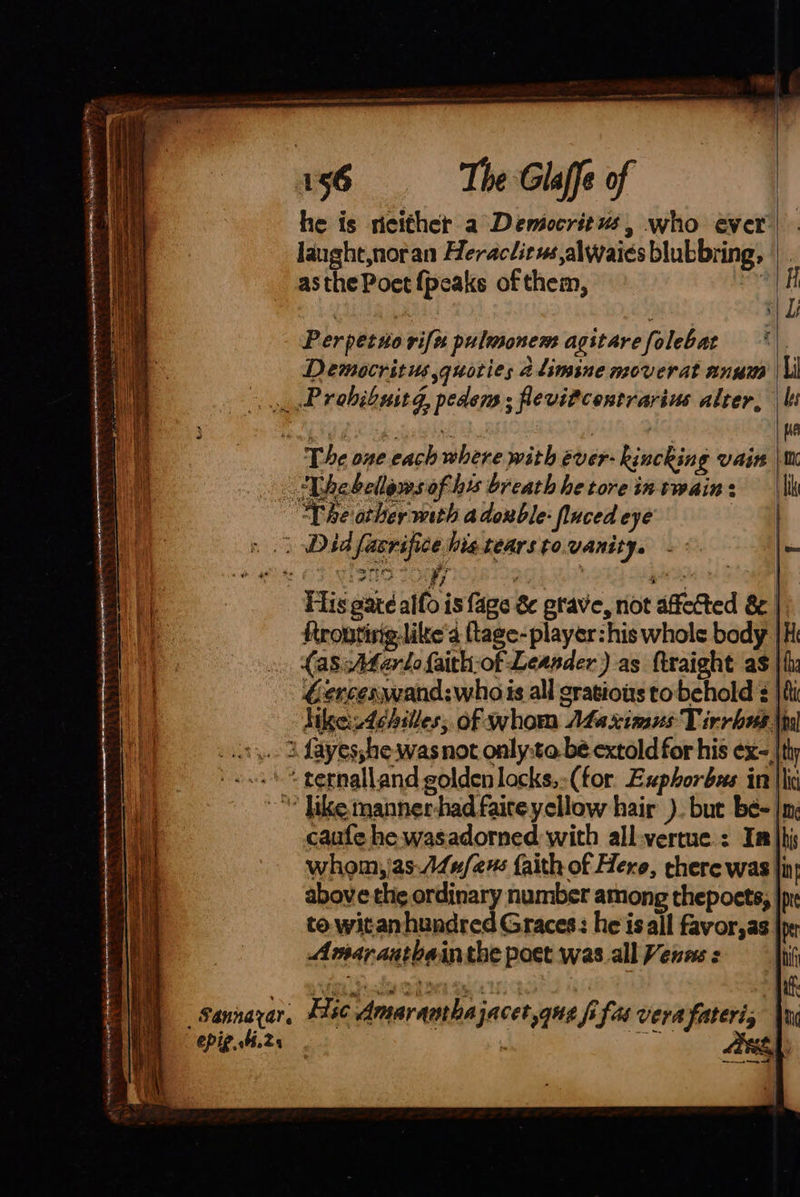 156 The Glaſſe of
he is neither a Democritus, who ever
laught,nor an Heraclitus,alwaies blubbring,
as the Poet ſpeaks of them,
Perpetuo riſu pulmonem agitare ſolebat
Democritus,quoties à limine moverat unum
Prohibuitq; pedem; flevit contrarius alter,
The one each where with ever-kincking vain
The bellows of his breath he tore in twain:
The other with a double-fluced eye
Did ſacrifice his tears to vanity.
His gate alſo is ſage & grave, not affected &
ſtrouting-like a ſtage-player:his whole body
(as Marlo ſaith of Leander) as ſtraight as
Circes wand:who is all gratious to behold :
like Achilles, of whom Maximus Tirrhus
ſayes,he was not only to be extold for his ex-
ternall and golden locks, (for Euphorbus in
like manner had faire yellow hair ) but be-
cauſe he was adorned with all vertue : In
whom, as Muſæus ſaith of Hero, there was
above the ordinary number among the poets,
to wit an hundred Graces: he is all favor,as
Amarantha in the poet was all Venus :
Sannazar. Hic Amarantha jacet,quæ ſi fas vera fateri,
epig.
Aut